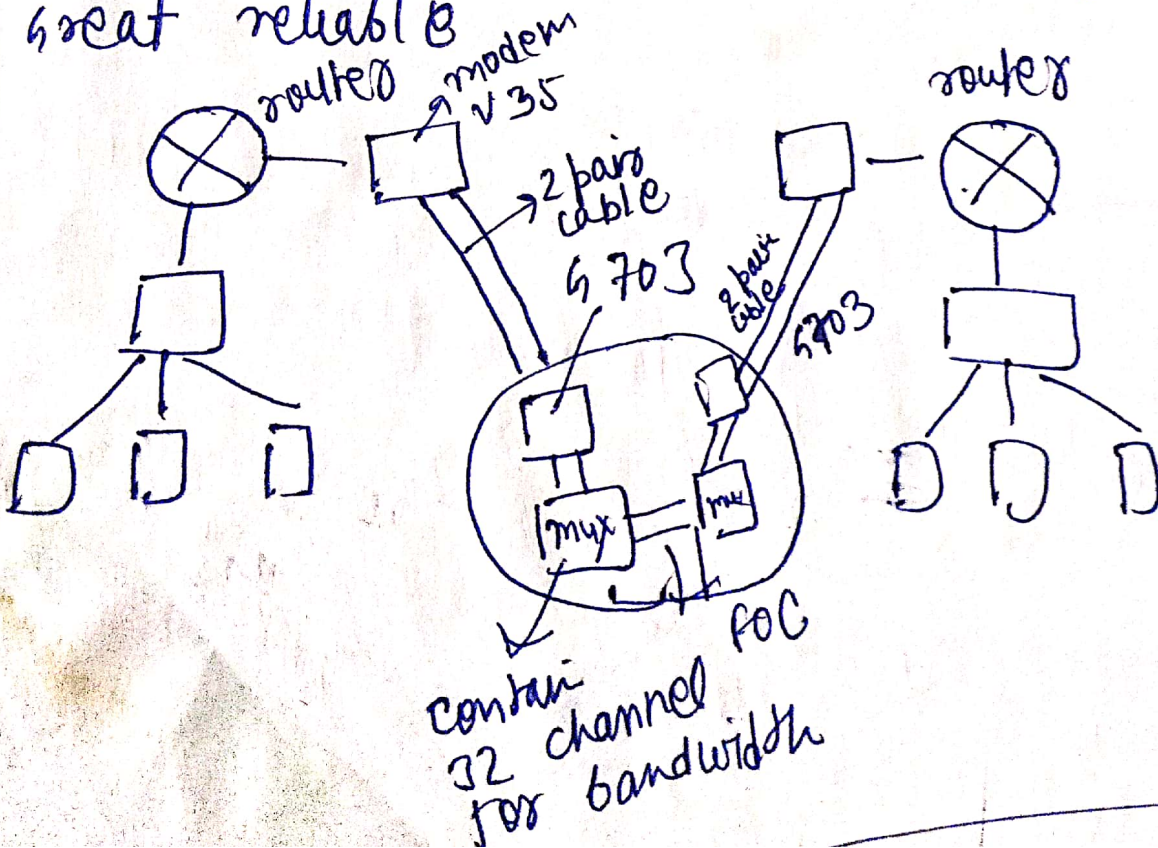 Great reliable
router
modem
V 35
router
2 pair
cable
G 703
2 pair
cable
G703
mux
mux
FOC
contain
32 channel
for bandwidth